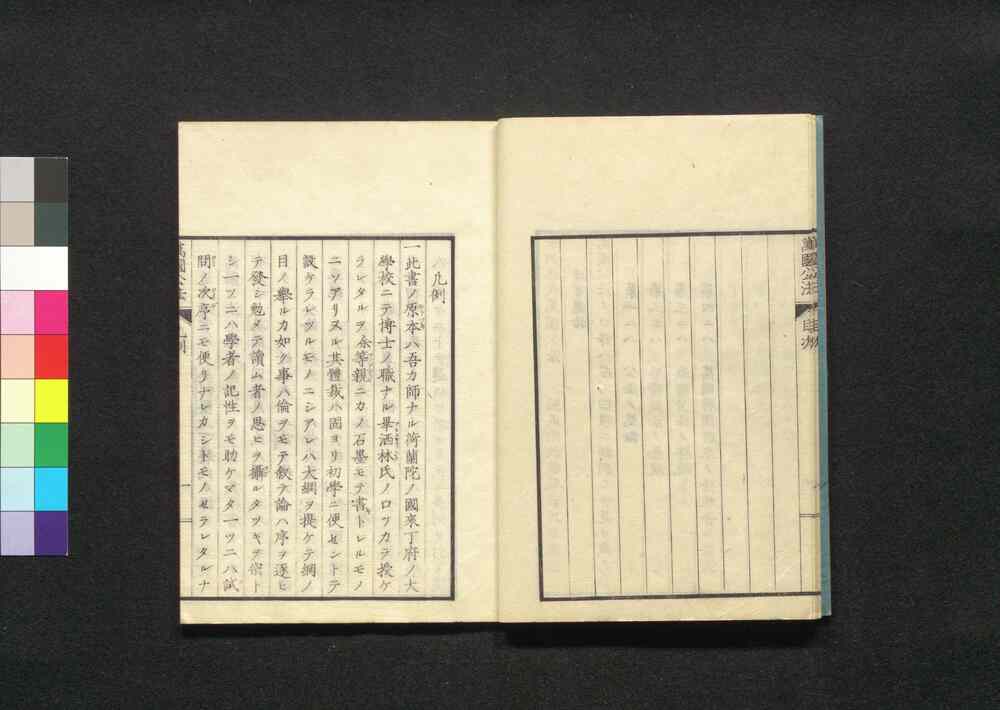 萬國公法
凡例
一此書ノ原本ハ吾カ師ナル荷蘭陀ノ國來丁府ノ大
學校ニテ博士ノ職ナル畢洒林氏ノ口ツカラ授ケ
ラレタルヲ余等親ニカノ石墨モテ書トレルモノ
ニソアリヌル其體裁ハ固ヨリ初學ニ便セントテ
設ケラレツルモノニシアレハ大綱ヲ提ケテ綱ノ
目ノ擧ルカ如ク事ハ倫ヲモテ叙テ論ハ序ヲ逐ヒ
テ發シ勉メテ讀ム者ノ思ヒヲ攝ルタツキヲ宗ト
シ一ツニハ學者ノ記性ヲモ助ケマタ一ツニハ試
問ノ次序ニモ便リナレカシトモノセラレタルナ
萬國公法 凡例